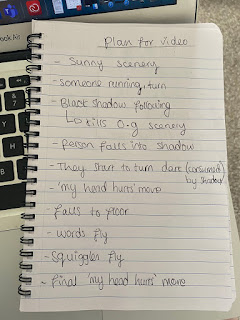 book Air
Plan for video
- Sunny scenery
- someone running, turn
- Black shadow following
↳ kills o-g scenery
- person falls into shadow
- They start to turn dark (consumed by shadow)
- 'my head hurts' move
- falls to floor
- words fly
- squiggles fly
- final 'my head hurts' move